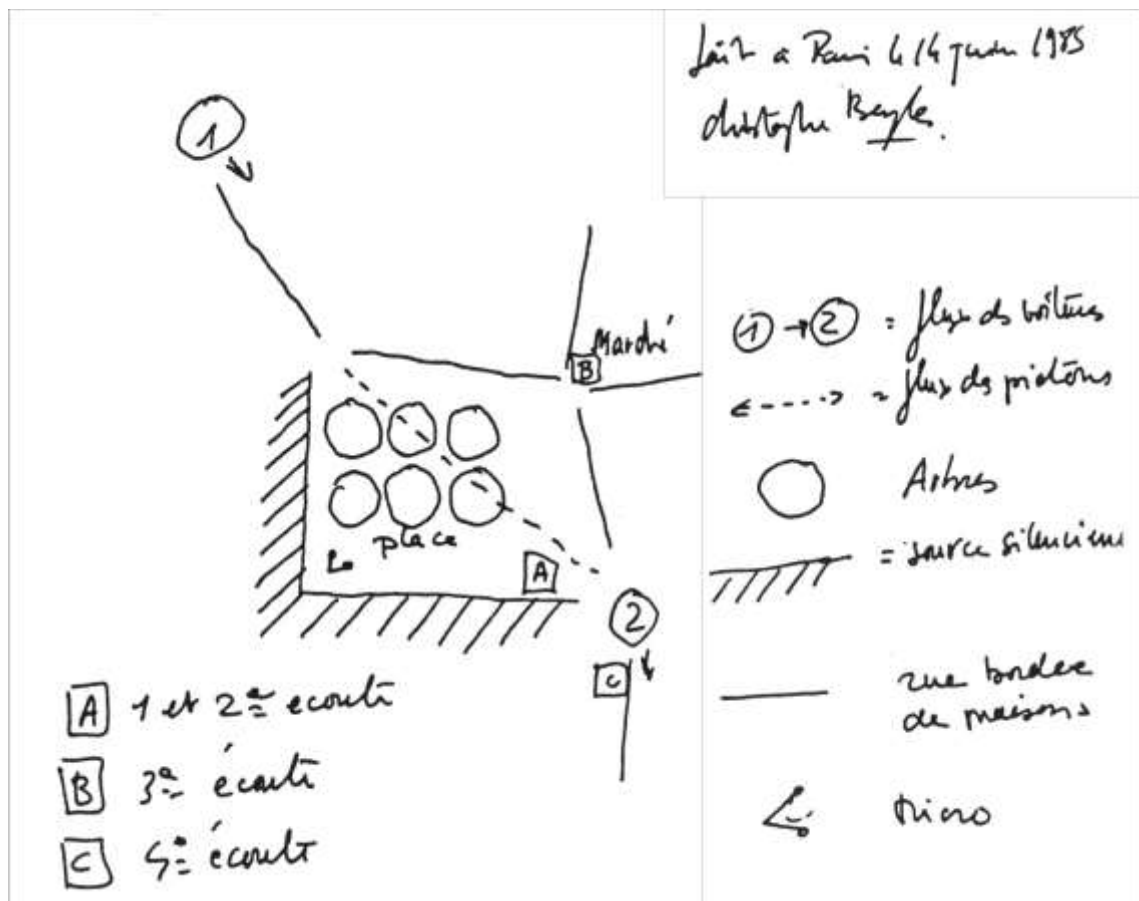 fait a Paris le 14 juin 1985
christophe
1
Marché
B
place
A
2
C
1 → 2 = flux des voitures
= flux des piétons
Arbres
= source silencieuse
rue bordée
de maisons
Micro
A 1 et 2e ecoute
B 3e écoute
C écoute